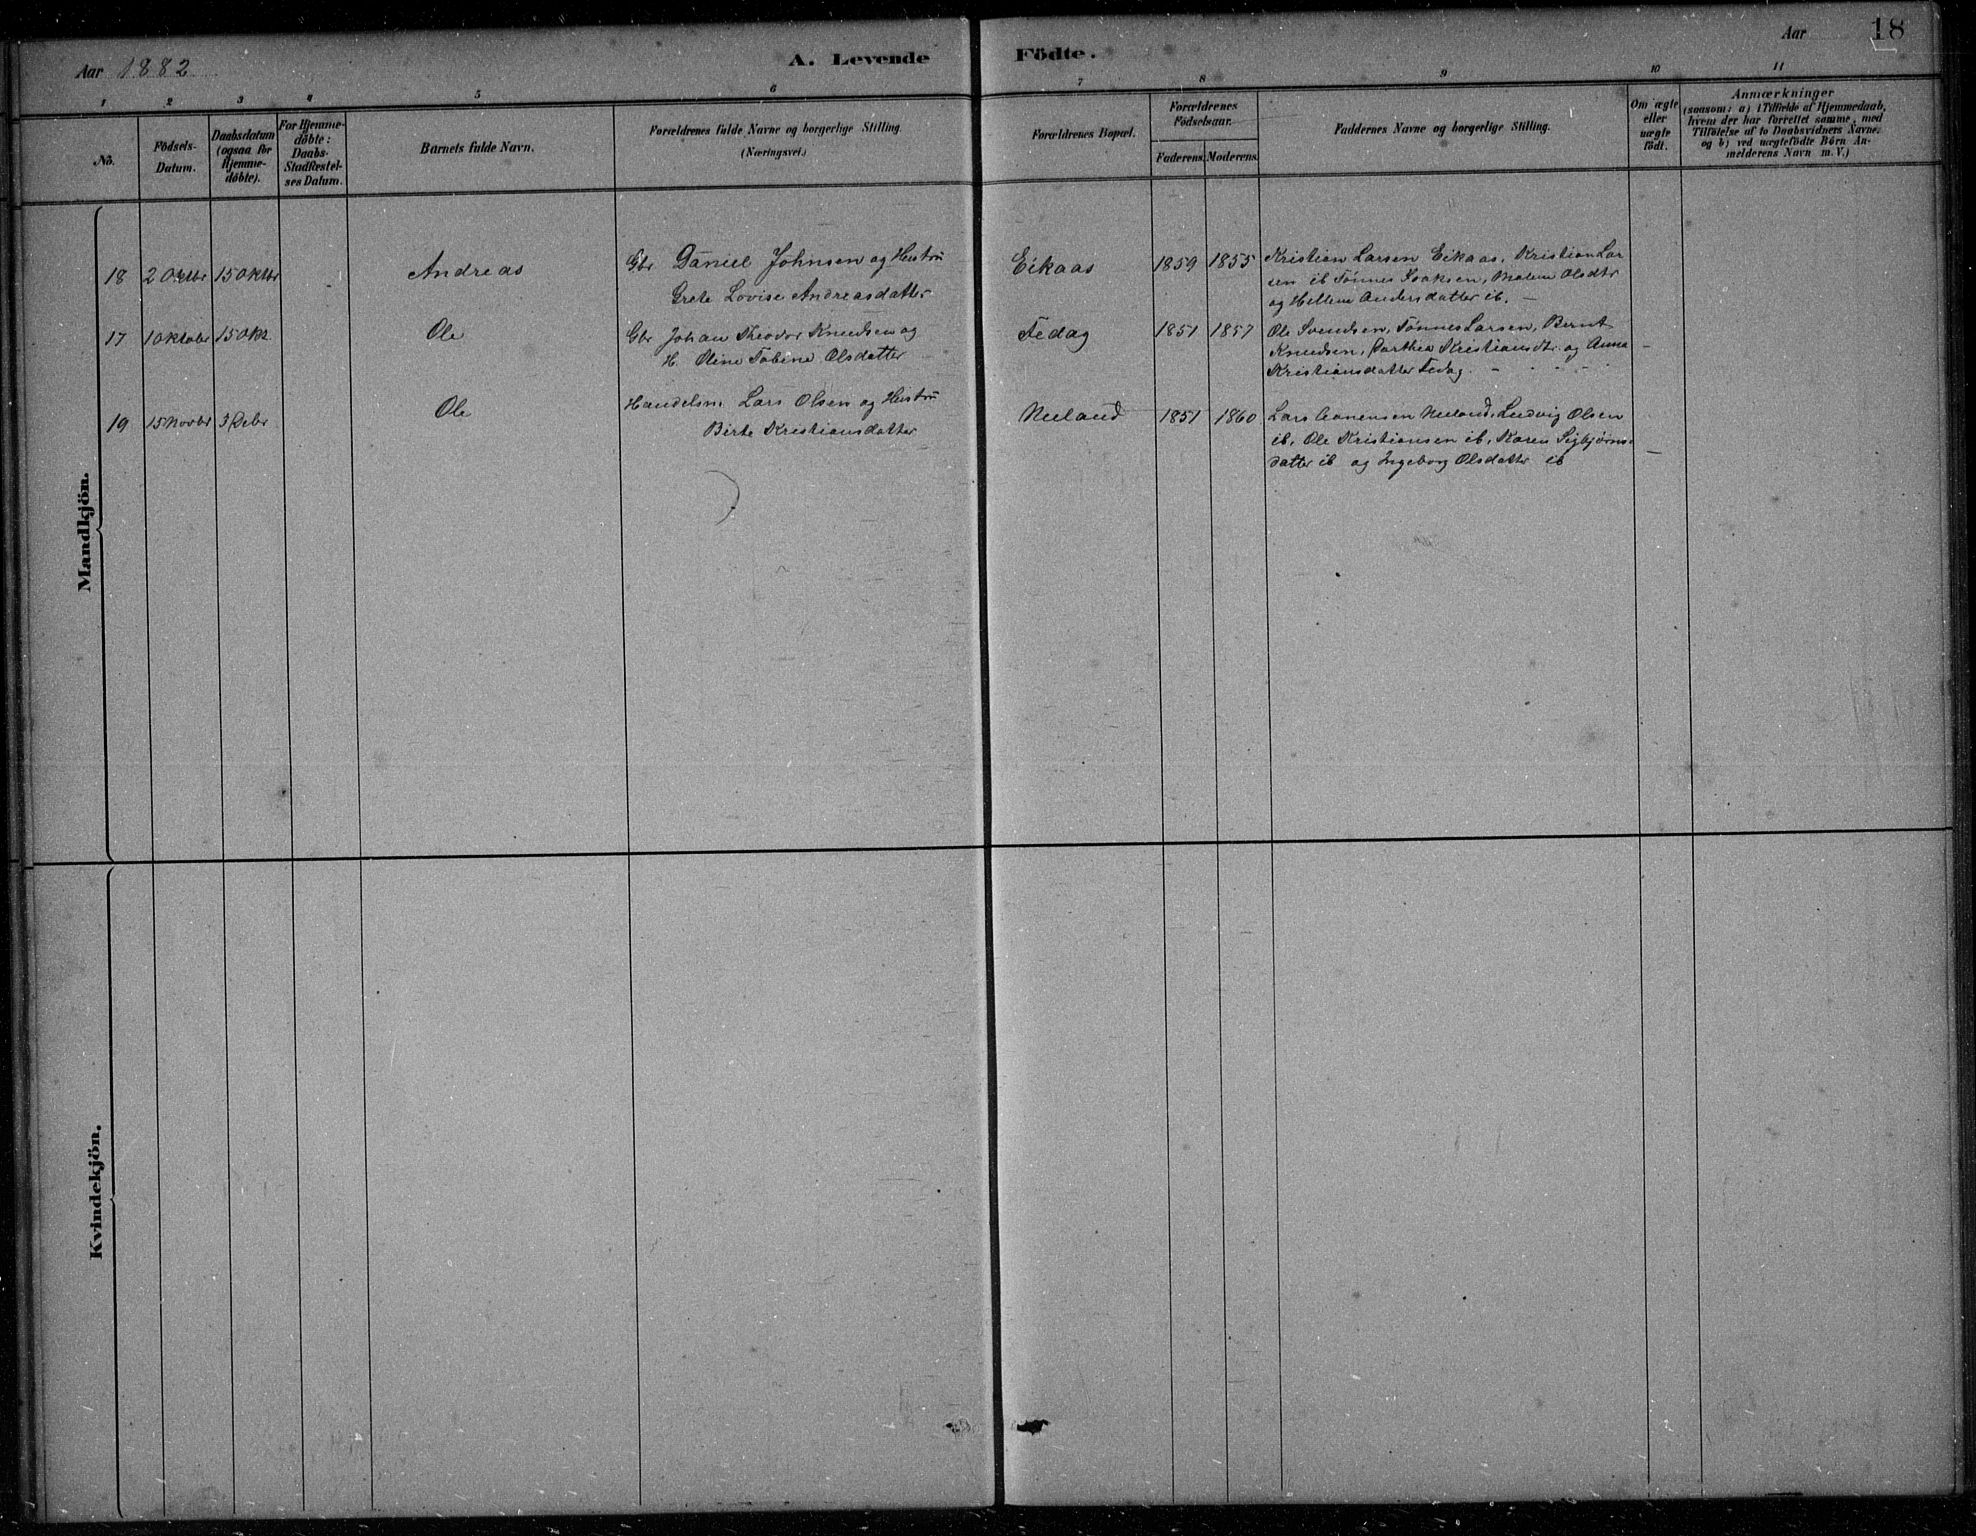 Aar 1882
A. Levende
Födte.
Aar
18
1
2
3
4
5
6
7
8
9
10
11
No.
Födsels-
Datum.
Daabsdatum
(ogsaa for
Hjemme-
døbte).
For Hjemme-
døbte:
Daabs-
Stadfæstel-
ses Datum.
Barnets fulde Navn.
Forældrenes fulde Navne og borgerlige Stilling.
(Næringsvei.)
Forældrenes Bopæl.
Forældrenes
Födselsaar.
Faderens.
Moderens.
Faddernes Navne og borgerlige Stilling.
Om ægte
eller
uægte
födt.
Anmærkninger
(saasom: a) i Tilfælde af Hjemmedaab,
hvem der har forrettet samme, med
Tilföielse af to Daabsvidners Navne.
og b) ved uægtefödte Börn An-
melderens Navn m. V.)
Mandkjön.
18
2 Oktbr
15 Oktbr
Andreas
Gbr Daniel Johnsen og Hustru
Grete Lovise Andreasdatter
Eikaas
1859
1855
Kristian Larsen Eikaas, Kristian Lar
sen ib Tønnes Isaksen, Malene Olsdtr
og Hellene Andersdatter ib. —
17
1 Oktobr
15 Ok.
Ole
Gbr Johan Theodor Knudsen og
H. Oline Tobine Olsdatter
Fedag
1851
1857
Ole Svendsen, Tønnes Larsen, Bernt
Knudsen, Dorthea Kristiansdtr. og Anna
Kristiansdatter Fedag.
—
19
15 Novbr
3 Debr
Ole
Handelsm. Lars Olsen og Hustru
Birte Kristiansdatter
Nuland
1851
1860
Lars Aanensen Nuland, Ludvig Olsen
ib, Ole Kristiansen ib, Karen Sigbjørns-
datter ib og Ingeborg Olsdatter ib
—
Kvindekjön.